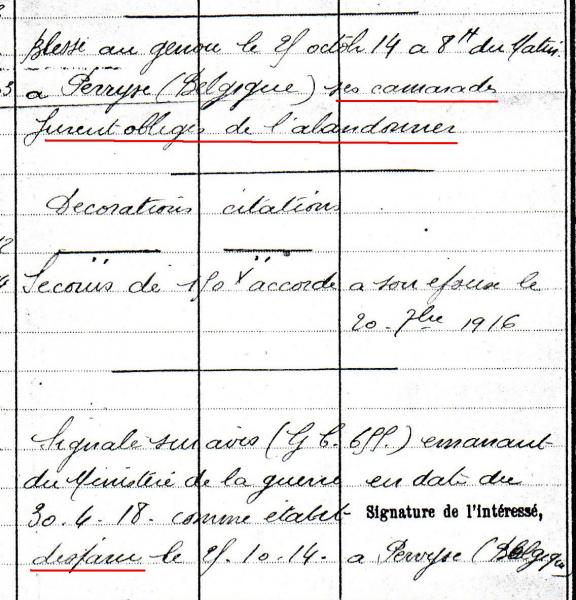 Blessé au genou le 25 octob 14 a 8H du Matin
a Perryse (Belgique) ses camarades
furent obligés de l'abandonner
Decorations citations
Secours de 150 accordé a son epouse le
20 - 7bre 1916
Signalé sur avis (G C. 655.) emanant
du Ministére de la guerre en date du
30. 4. 18. comme étabet Signature de l'intéressé,
disparu le 25. 10. 14. a Pervyse (Belgique)